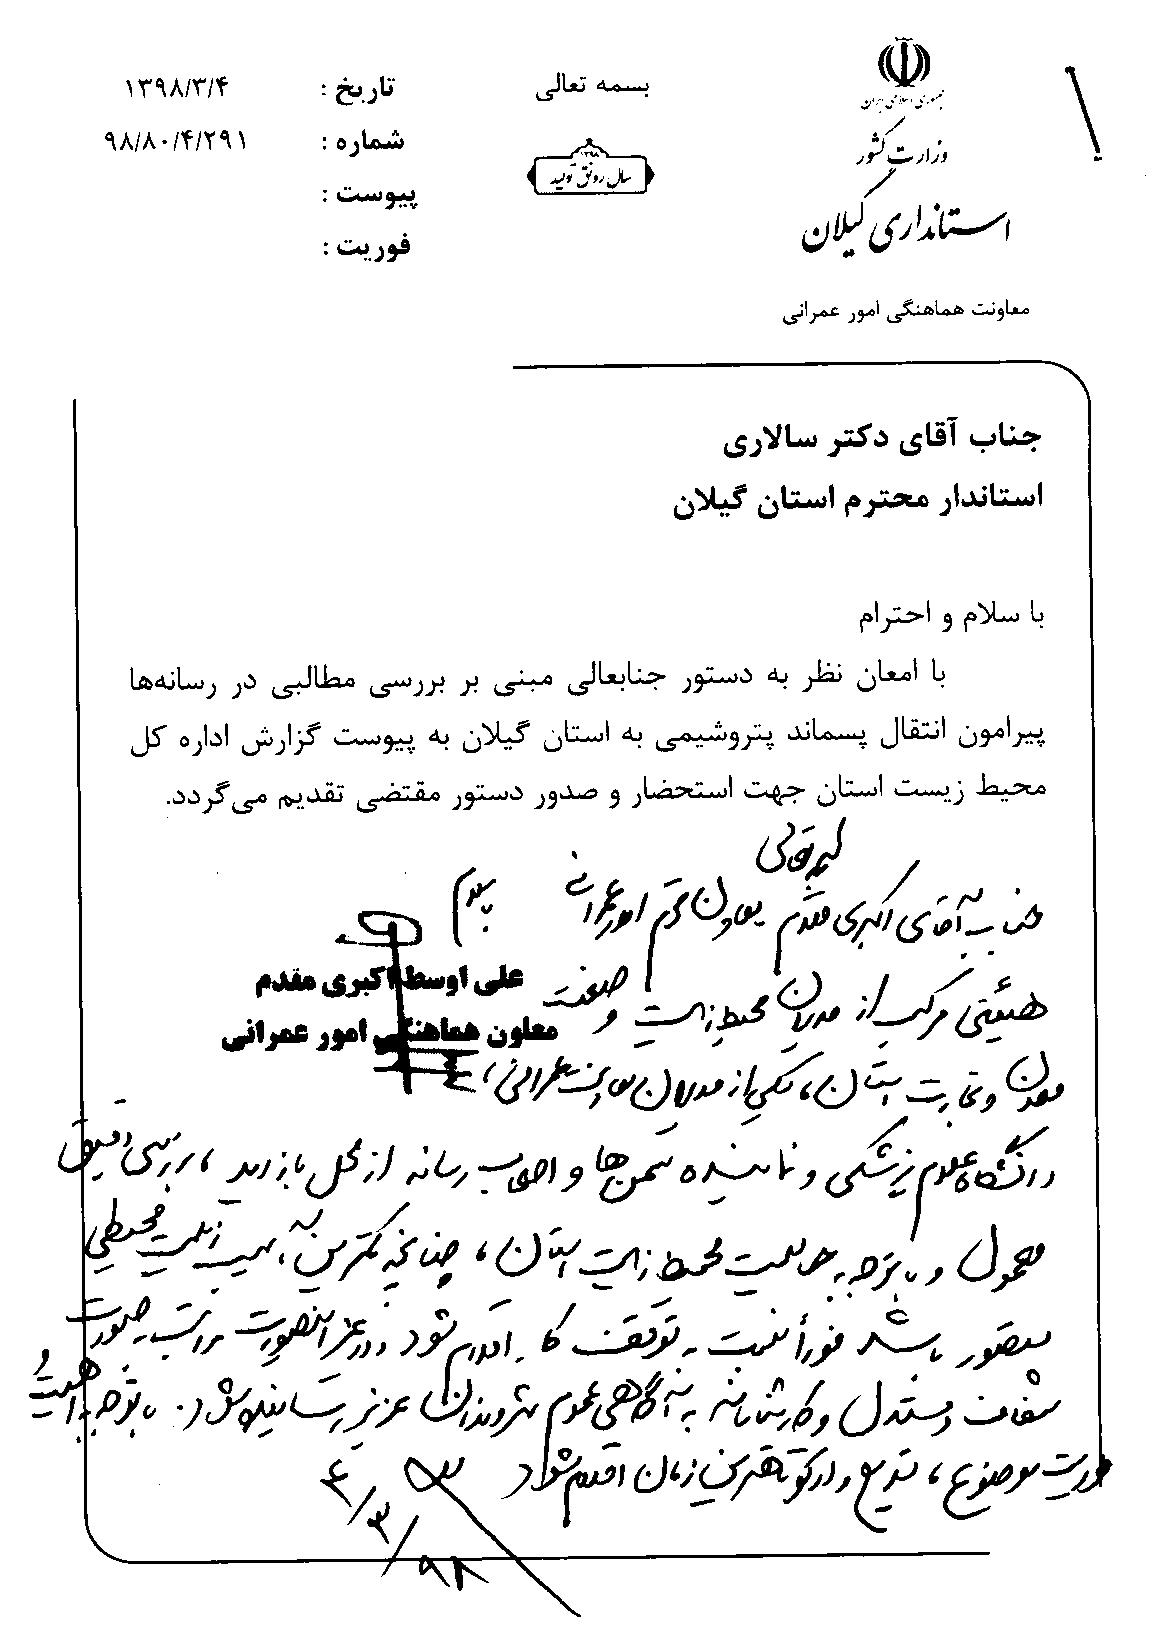 جمهوری اسلامی ایران
وزارت کشور
استانداری گیلان
معاونت هماهنگی امور عمرانی
بسمه تعالی
۱۳۹۸
سال رونق تولید
تاریخ : ۱۳۹۸/۳/۴
شماره : ۹۸/۸۰/۴/۲۹۱
پیوست :
فوریت :
جناب آقای دکتر سالاری
استاندار محترم استان گیلان
با سلام و احترام
با امعان نظر به دستور جنابعالی مبنی بر بررسی مطالبی در رسانه‌ها
پیرامون انتقال پسماند پتروشیمی به استان گیلان به پیوست گزارش اداره کل
محیط زیست استان جهت استحضار و صدور دستور مقتضی تقدیم می‌گردد.
بسمه تعالی
جناب آقای اکبری مقدم معاون محترم امور عمرانی
علی اوسط اکبری مقدم
معاون هماهنگی امور عمرانی
هیئتی مرکب از مدیران محیط زیست و صنعت
معدن و تجارت استان، یکی از مدیران معاونت عمرانی،
دانشگاه علوم پزشکی و نماینده سمن‌ها و اصحاب رسانه از محل بازدید، بررسی دقیق
معمول و با توجه به محیط زیست استان، چنانچه کمترین آسیب زیست محیطی
متصور باشد فوراً نسبت به توقف کار اقدام شود در غیر اینصورت مراتب بصورت
شفاف و مستدل و کارشناسانه به آگاهی عموم شهروندان عزیز رسانیده شود. با توجه به اهمیت و
فوریت موضوع، تسریع و در کوتاهترین زمان اقدام شود
۹۸/۳/۴